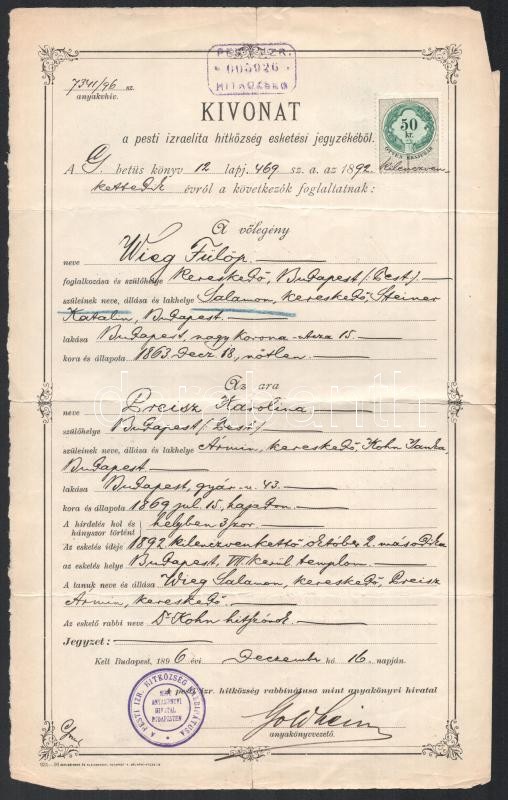 PESTI IZR.
005926
HITKÖZSÉG
7341/96 sz.
anyakvhiv.
KIVONAT
a pesti izraelita hitközség esketési jegyzékéből.
50
kr.
A G betüs könyv 12 lapj. 469 sz. a. az 1892. kilenczven-
kettedik évről a következők foglaltatnak:
A vőlegény
neve Wieg Fülöp.
foglalkozása és szülőhelye kereskedő, Budapest (: Pest :)
szüleinek neve, állása és lakhelye Salamon, kereskedő Steiner
Katalin, Budapest.
lakása Budapest, nagy korona-utcza 15.
kora és állapota 1863 Decz 18, nőtlen.
Az ara
neve Preisz Karolina
szülőhelye Budapest (: Pest :)
szüleinek neve, állása és lakhelye Ármin, kereskedő, Kohn Hanka
Budapest
lakása Budapest, gyár-u. 43.
kora és állapota 1869 jul. 15, hajadon.
A hirdetés hol és hányszor történt helyben 3szor.
Az esketés idéje 1892 kilenczvenkettő október 2. második
az esketés helye Budapest, VII kerül. templom.
A tanuk neve és állása Wieg Salamon, kereskedő, Preisz
Ármin, kereskedő.
Az eskető rabbi neve Dr Kohn hitszónok
Jegyzet:
Kelt Budapest, 1896 évi Deczember hó 16. napján.
a pesti izr. hitközség rabbinátusa mint anyakönyvi hivatal
A PESTI IZR. HITKÖZSÉG RABBINÁTUSA
MINT ANYAKÖNYVI HIVATAL BUDAPESTEN
Goldheim
anyakönyvvezető.
darabanth